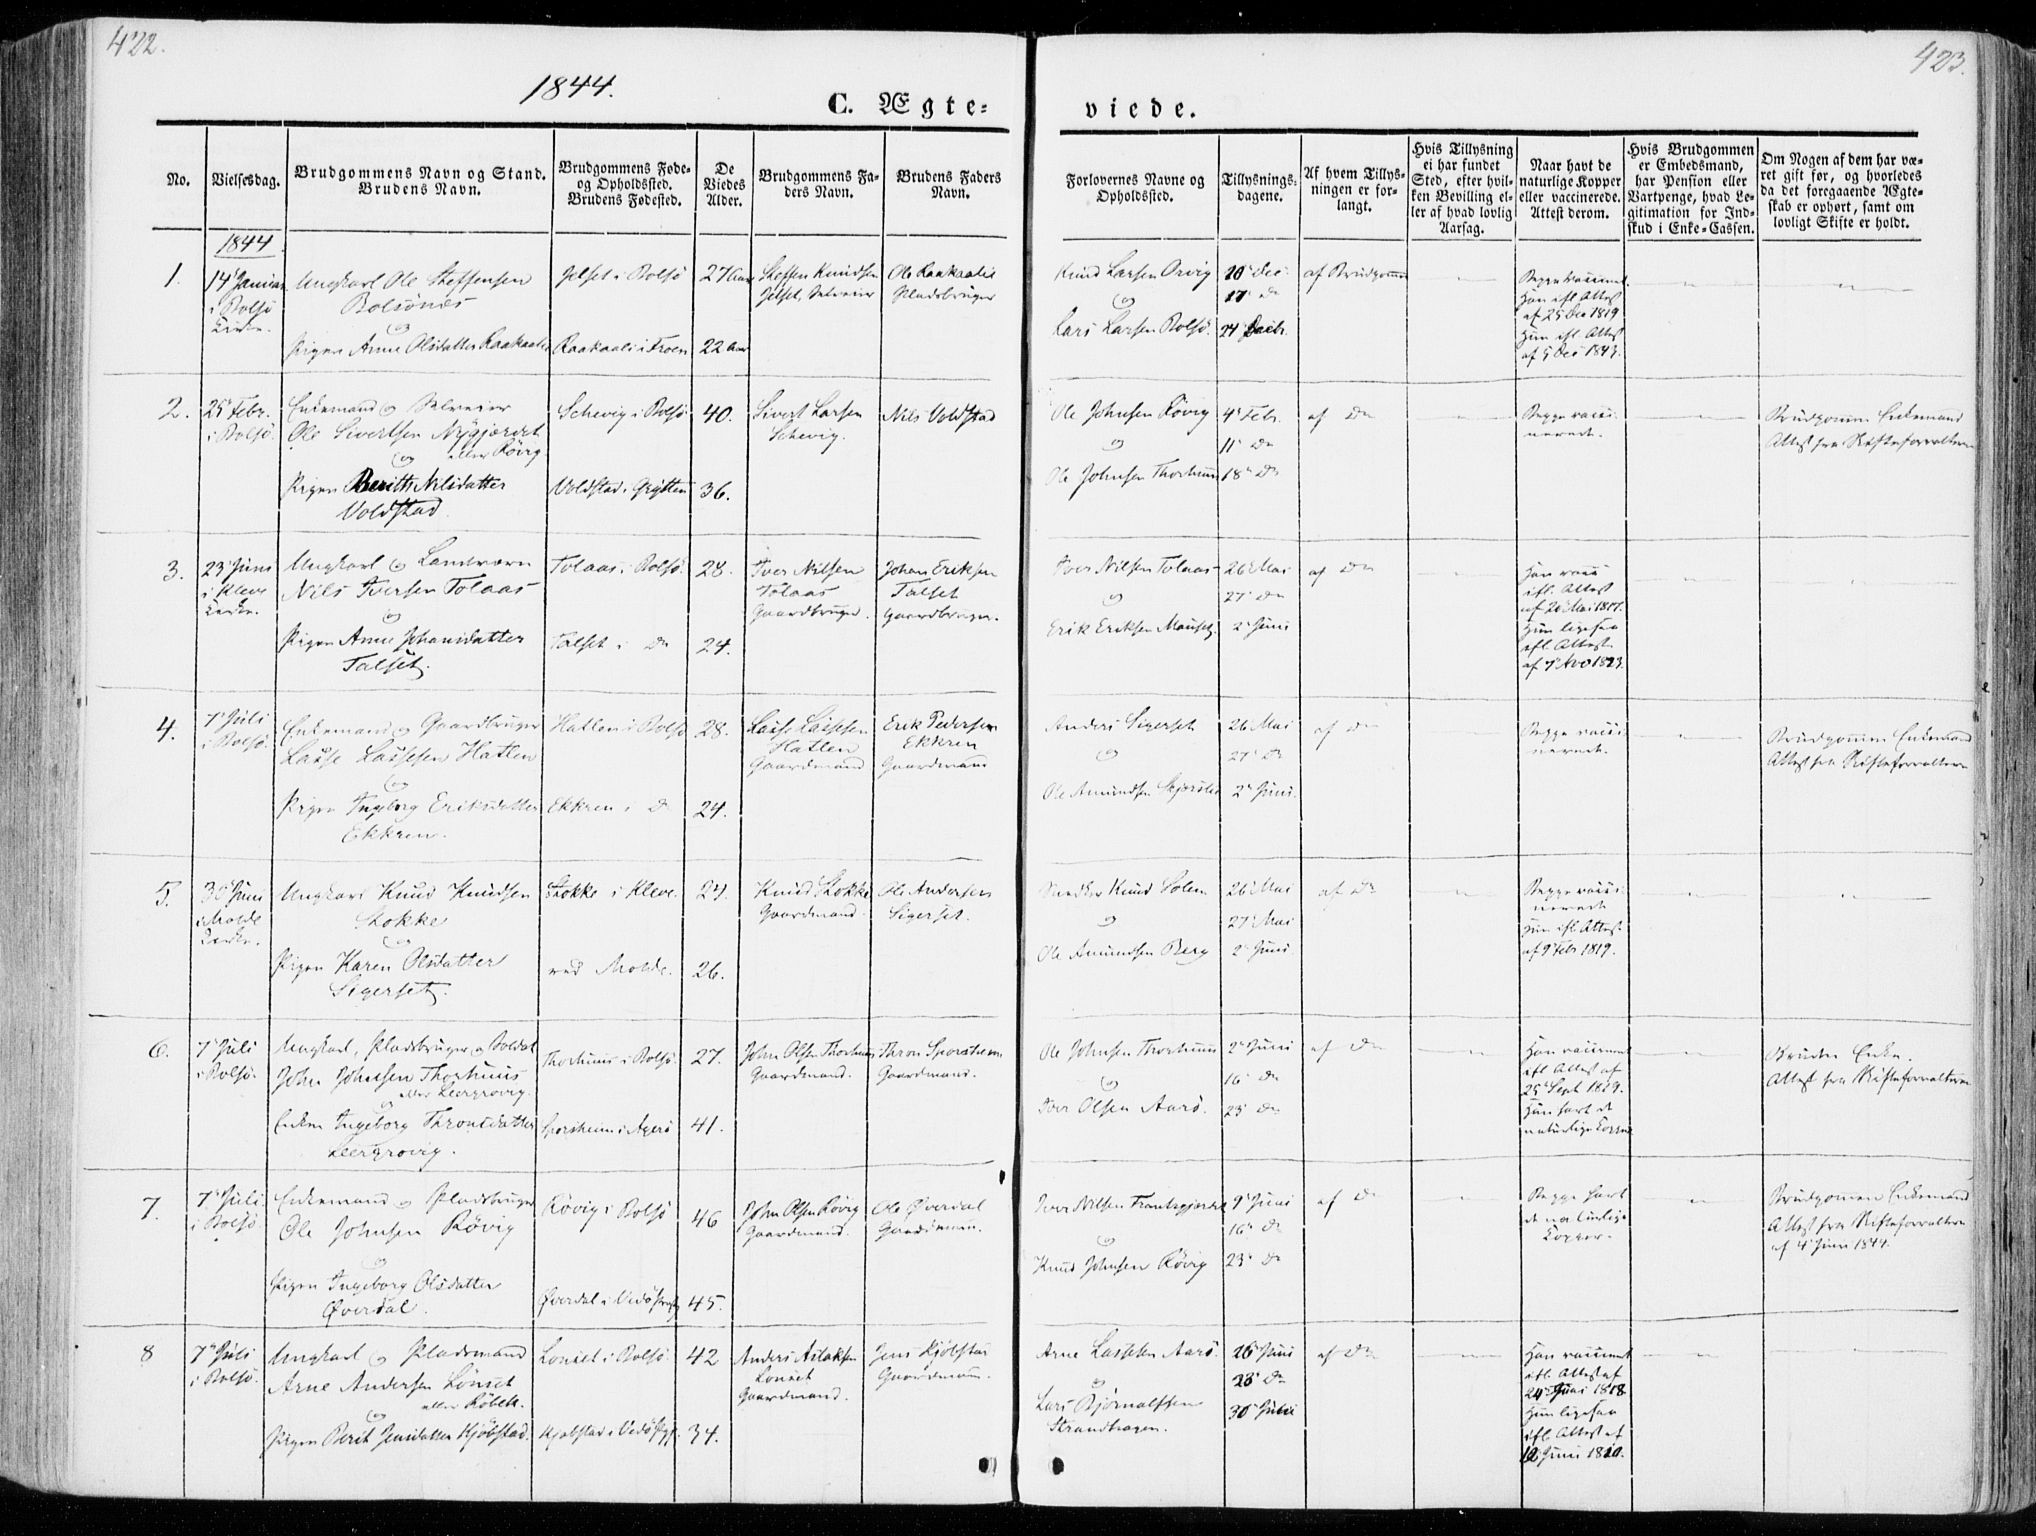 422.
423.
1844.
C. Ægte=
viede.
No.
Vielsesdag.
Brudgommens Navn og Stand.
Brudens Navn.
Brudgommens Føde-
og Opholdssted.
Brudens Fødested.
De
Viedes
Alder.
Brudgommens Fa-
ders Navn.
Brudens Faders
Navn.
Forlovernes Navne og
Opholdssted.
Tillysnings-
dagene.
Af hvem Tillys-
ningen er for-
langt.
Hvis Tillysning
ei har fundet
Sted, efter hvil-
ken Bevilling el-
ler af hvad lovlig
Aarsag.
Naar havt de
naturlige Kopper
eller vaccinerede.
Attest derom.
Hvis Brudgommen
er Embedsmand,
har Pension eller
Vartpenge, hvad Le-
gitimation for Ind-
skud i Enke-Cassen.
Om Nogen af dem har væ-
ret gift før, og hvorledes
da det foregaaende Ægte-
skab er ophørt, samt om
lovligt Skifte er holdt.
1844
1.
14 Januar
i Bolsø
Kirke.
Ungkarl Ole Steffensen
Bolsønæs
og
Pigen Anne Olsdatter Raakaalie
Jelset i Bolsø
Raakaali i Froen
27 Aar
22 Aar
Steffen Knudsen
Jelset, Selveier
Ole Raakaalie
Pladsbruger
Knud Larsen Orvig
og
Lars Larsen Bolsø.
10 Dec:
17 Do
24 Decbr.
af Brudgommen
Begge vaccineret
Han ifl. Attest
af 25 Dec 1819
Hun ifl. Attest
af 5 Dec 1843.
2.
25 Febr.
i Bolsø.
Enkemand og Selveier
Ole Sivertsen Nygjerdet
eller Røvig
og
Pigen Berith Nilsdatter
Voldstad.
Schevig i Bolsø
Voldstad i Grytten
40.
36.
Sivert Larsen
Schevig.
Nils Voldstad
Ole Johnsen Røvig
og
Ole Johnsen Thorhuus
4 Febr.
11 Do
18 Do
af Do
Begge vacci-
nerede.
Brudgommen Enkemand
Attest fra Skifteforvalteren
3.
23 Juni
i Kleve
Kirke.
Ungkarl og Landværn
Nils Iversen Tolaas
og
Pigen Anne Johansdatter
Talset.
Tolaas i Bolsø.
Talset i Do
28.
24.
Iver Nilsen
Tolaas
Gaardbruger.
Johan Eriksen
Talset
Gaardbruger.
Iver Nilsen Tolaas
og
Erik Eriksen Mauset.
26 Mai
27 Do
2 Juni
af Do
Han vacci
ifl. Attest
af 20 Mai 1817.
Hun ligesaa
ifl. Attest
af 7 Nov 1823.
4.
7 Juli
i Bolsø.
Enkemand og Gaardbruger
Lasse Lassesen Hatlen
og
Pigen Ingeborg Eriksdatter
Ekkren.
Hatlen i Bolsø
Ekkren i Do
28.
24.
Lasse Lassesen
Hatlen
Gaardmand
Erik Pedersen
Ekkren
Gaardmand
Anders Sigerset
og
Ole Amundsen
26 Mai
27 Do
2 Juni.
af Do
Begge vacci-
nerede.
Brudgommen Enkemand
Attest fra Skifteforvalteren
5.
30 Juni
i Molde
Kirke.
Ungkarl Knud Knudsen
Stokke
og
Pigen Karen Olsdatter
Sigerset.
Stokke i Kleve.
ved Molde.
24.
26.
Knud Stokke
Gaardmand.
Ole Andersen
Sigerset.
Snedker Knud Solem
og
Ole Amundsen Berg
26 Mai
27 Mai
2 Juni.
af Do
Begge vacci-
nerede
Hun ifl. Attest
af 9 Febr 1819.
6.
7 Juli
i Bolsø.
Ungkarl, Pladsbruger og Soldat
John Johnsen Thorhuus
eller Leergrovig.
og
Enken Ingeborg Thronsdatter
Leergrovig.
Thorhuus i Bolsø.
Sporsheim i Agerø
27.
41.
John Olsen Thorhuus
Gaardmand.
Thron Sporsheim
Gaardmand.
Ole Johnsen Thorhuus
og
Iver Olsen Aarø.
2 Juni
16 Do
23 Do
af Do
Han vaccineret
ifl. Attest af
25 Sept 1819.
Hun havt de
naturlige Kopper
Bruden Enke.
Attest fra Skifteforvalteren
7.
7 Juli
i Bolsø.
Enkemand og Pladsbruger
Ole Johnsen Røvig
og
Pigen Ingeborg Olsdatter
Øverdal.
Røvig i Bolsø
Øverdal i Vedø Præstg
46
45.
John Olsen Røvig
Gaardmand.
Ole Øverdal
Gaardmann.
Iver Nilsen
og
Knud Johnsen Røvig
9 Juni
16 Do
23 Do
af Do
Begge havt
de naturlige
Kopper.
Brudgommen Enkemand
Attest fra Skifteforvalteren
af 4 Juni 1844.
8
7 Juli
i Bolsø.
Ungkarl og Pladsmand
Arne Andersen Lønset
eller Røbek.
og
Pigen Berit Jensdatter Kjølstad.
Lønset i Bolsø.
Kjølstad i Vedø Pgj.
42
34.
Anders Aslaksen
Lønset
Gaardmand.
Jens Kjølstad
Gaardmann.
Arne Lassesen Aarø.
og
Lars Bjørnalfsen
Strandhagen.
16 Juni
23 Do
30 Juni
af Do
Han vaccineret
ifl. Attest af
24 Juni 1818
Hun ligesaa
ifl. Attest af
12 Juni 1820.